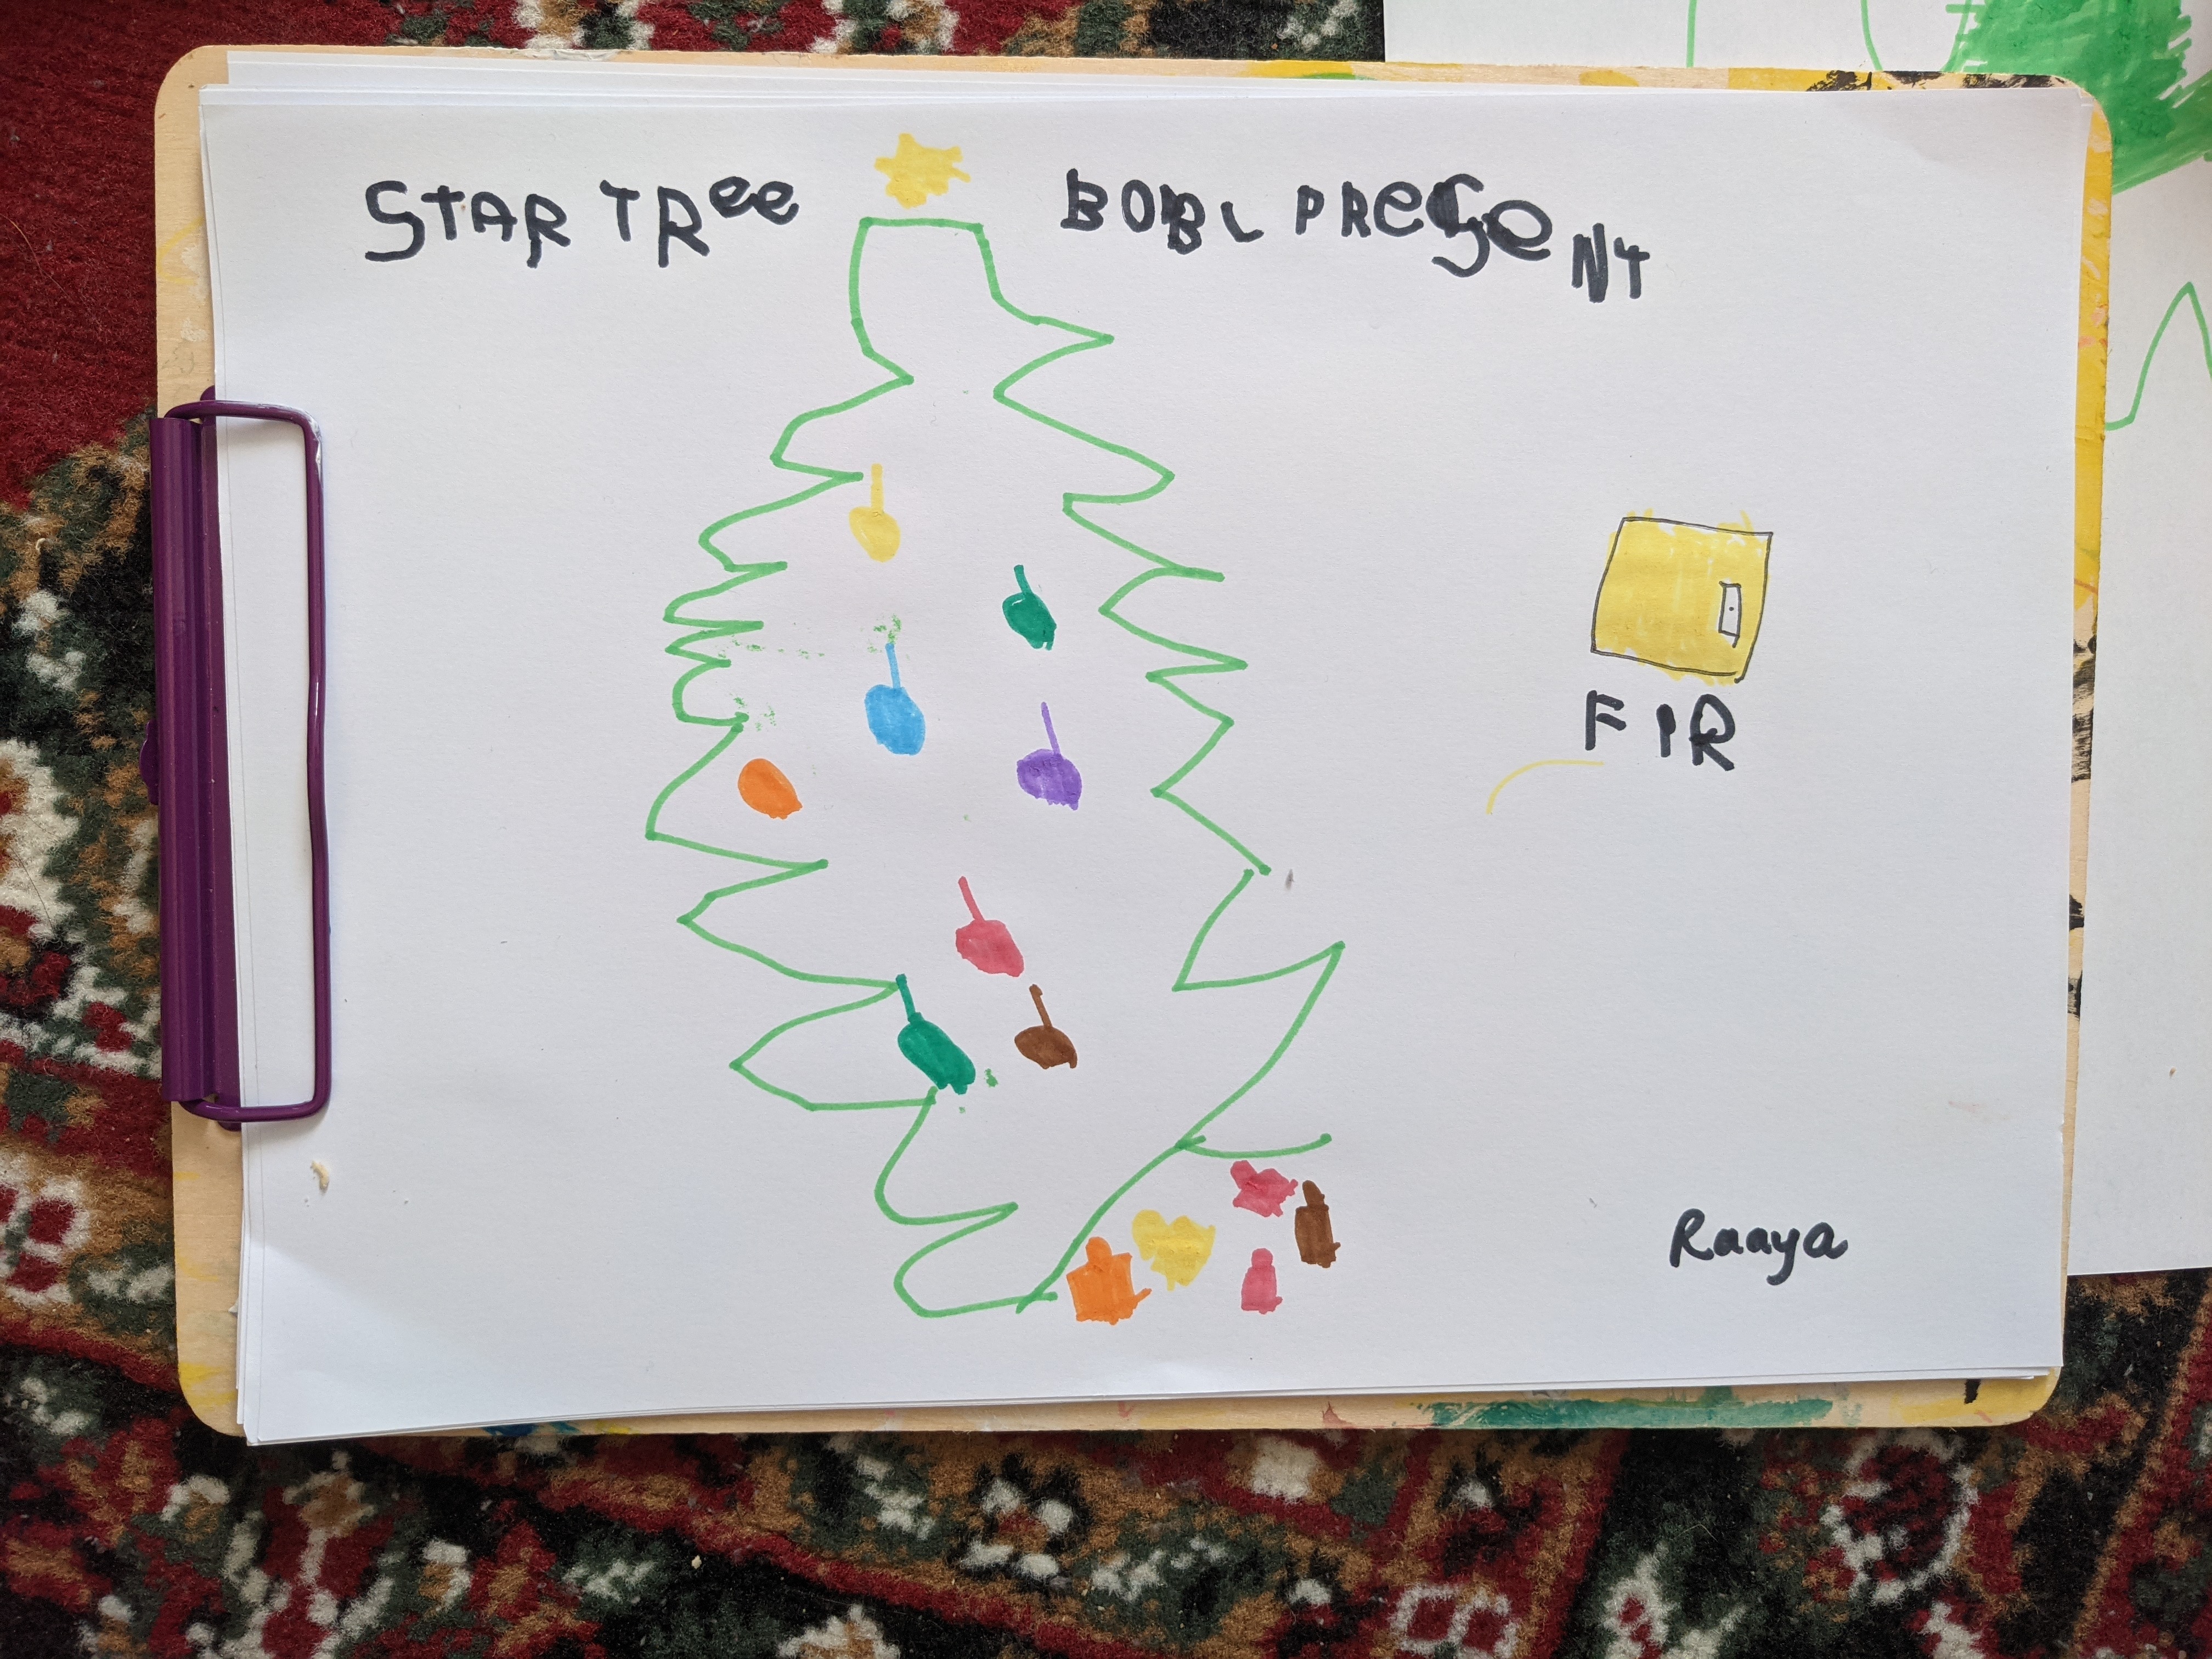 STAR TRee BOBL PReSeNT
FIR
Raaya